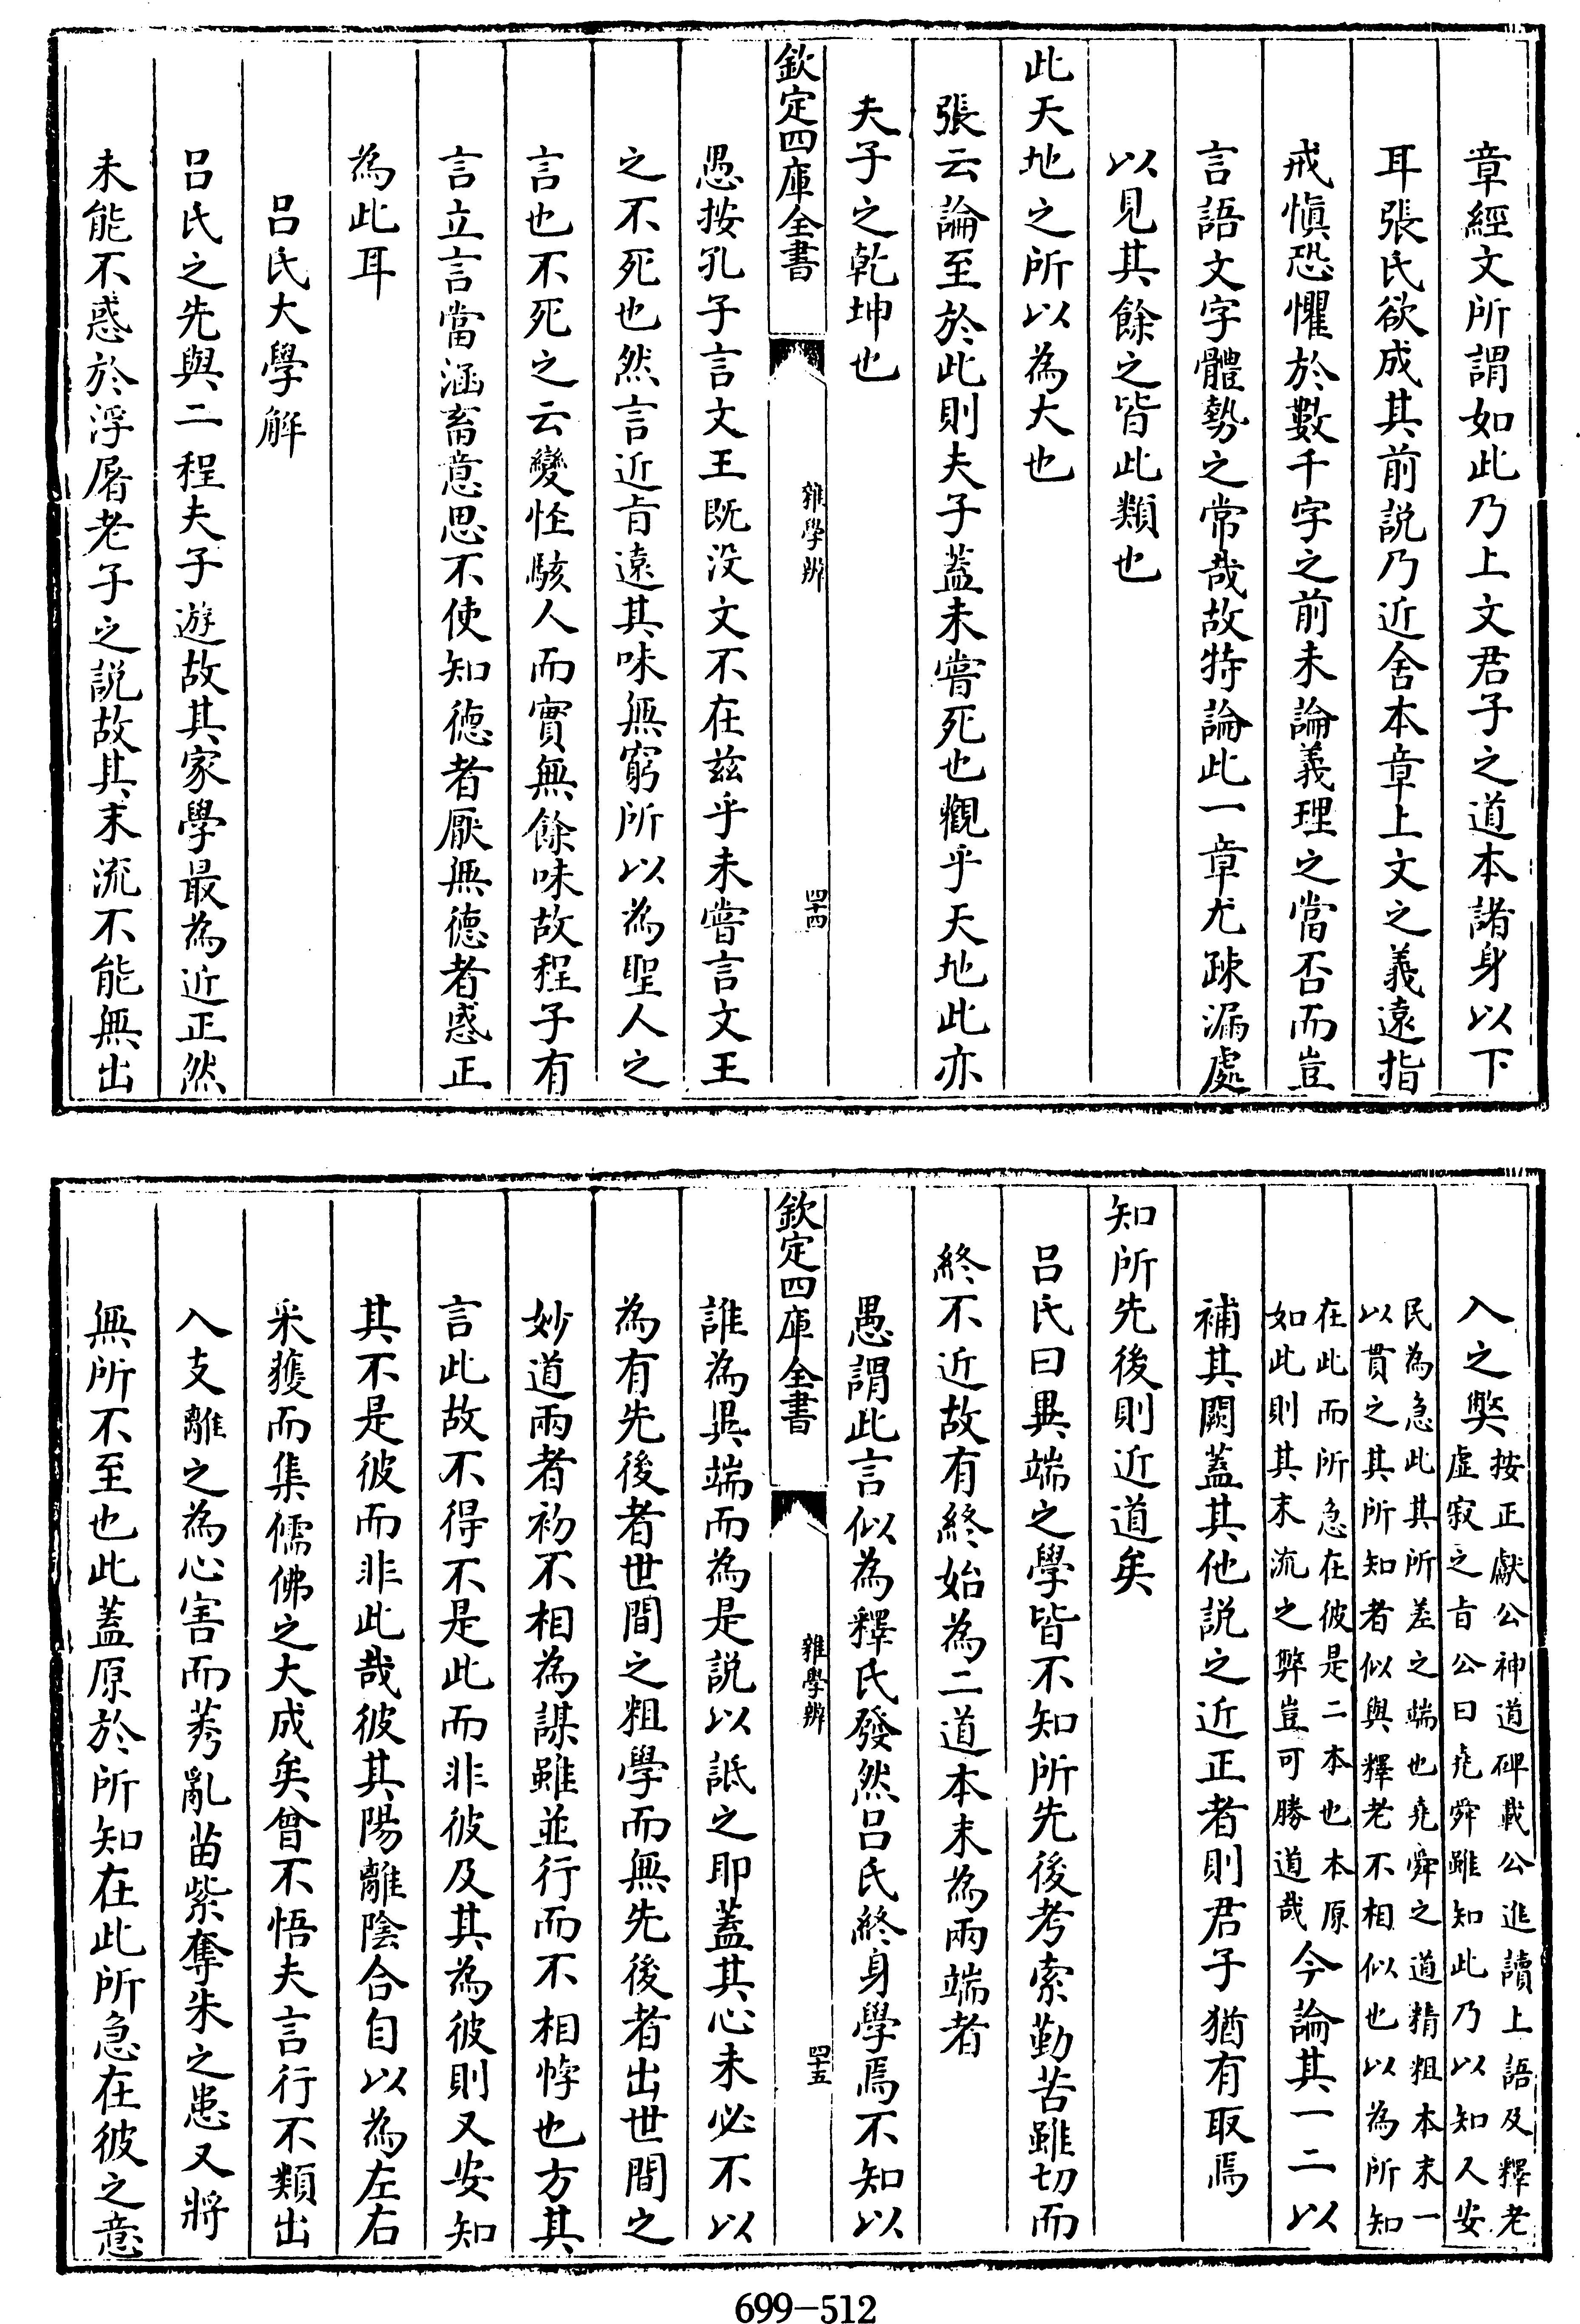 章經文所謂如此乃上文君子之道本諸身以下
耳張氏欲成其前説乃近舍本章上文之義遠指
戒慎恐懼於數千字之前未論義理之當否而豈
言語文字體勢之常哉故特論此一章尤疎漏處
以見其餘之皆此類也
此天地之所以為大也
張云論至於此則夫子蓋未嘗死也觀乎天地此亦
夫子之乾坤也
欽定四庫全書
雜學辨
四十四
愚按孔子言文王既没文不在兹乎未嘗言文王
之不死也然言近㫖遠其味無窮所以為聖人之
言也不死之云變怪駭人而實無餘味故程子有
言立言當涵畜意思不使知德者厭無德者惑正
為此耳
吕氏大學解
吕氏之先與二程夫子遊故其家學最為近正然
未能不惑於浮屠老子之説故其末流不能無出
入之弊按正獻公神道碑載公進讀上語及釋老
虚寂之㫖公曰堯舜雖知此乃以知人安
民為急此其所差之端也堯舜之道精粗本末一
以貫之其所知者似與釋老不相似也以為所知
在此而所急在彼是二本也本原
如此則其末流之弊豈可勝道哉今論其一二以
補其闕蓋其他説之近正者則君子猶有取焉
知所先後則近道矣
吕氏曰異端之學皆不知所先後考索勤苦雖切而
終不近故有終始為二道本末為兩端者
愚謂此言似為釋氏發然吕氏終身學焉不知以
欽定四庫全書
雜學辨
四十五
誰為異端而為是説以詆之耶蓋其心未必不以
為有先後者世間之粗學而無先後者出世間之
妙道兩者初不相為謀雖並行而不相悖也方其
言此故不得不是此而非彼及其為彼則又安知
其不是彼而非此哉彼其陽離陰合自以為左右
采獲而集儒佛之大成矣曾不悟夫言行不類出
入支離之為心害而莠亂苗紫奪朱之患又將
無所不至也此蓋原於所知在此所急在彼之意
699-512